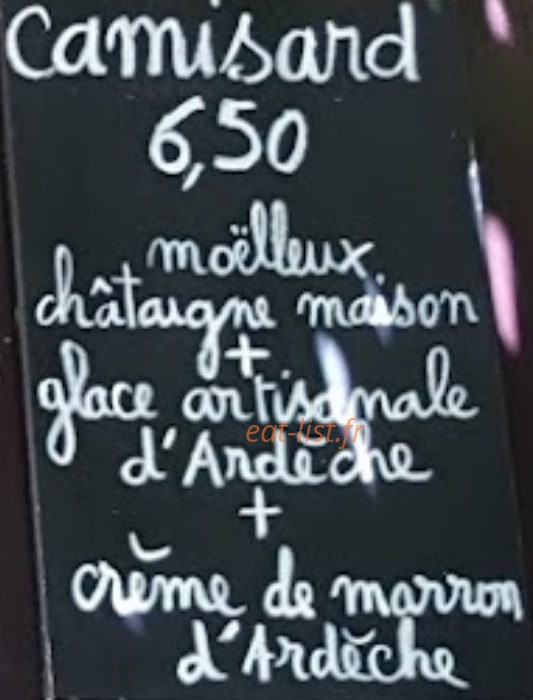 Camisard
6,50
moëlleux
châtaigne maison
+
glace artisanale
eat-list.fr
d'Ardèche
+
crème de marron
d'Ardèche